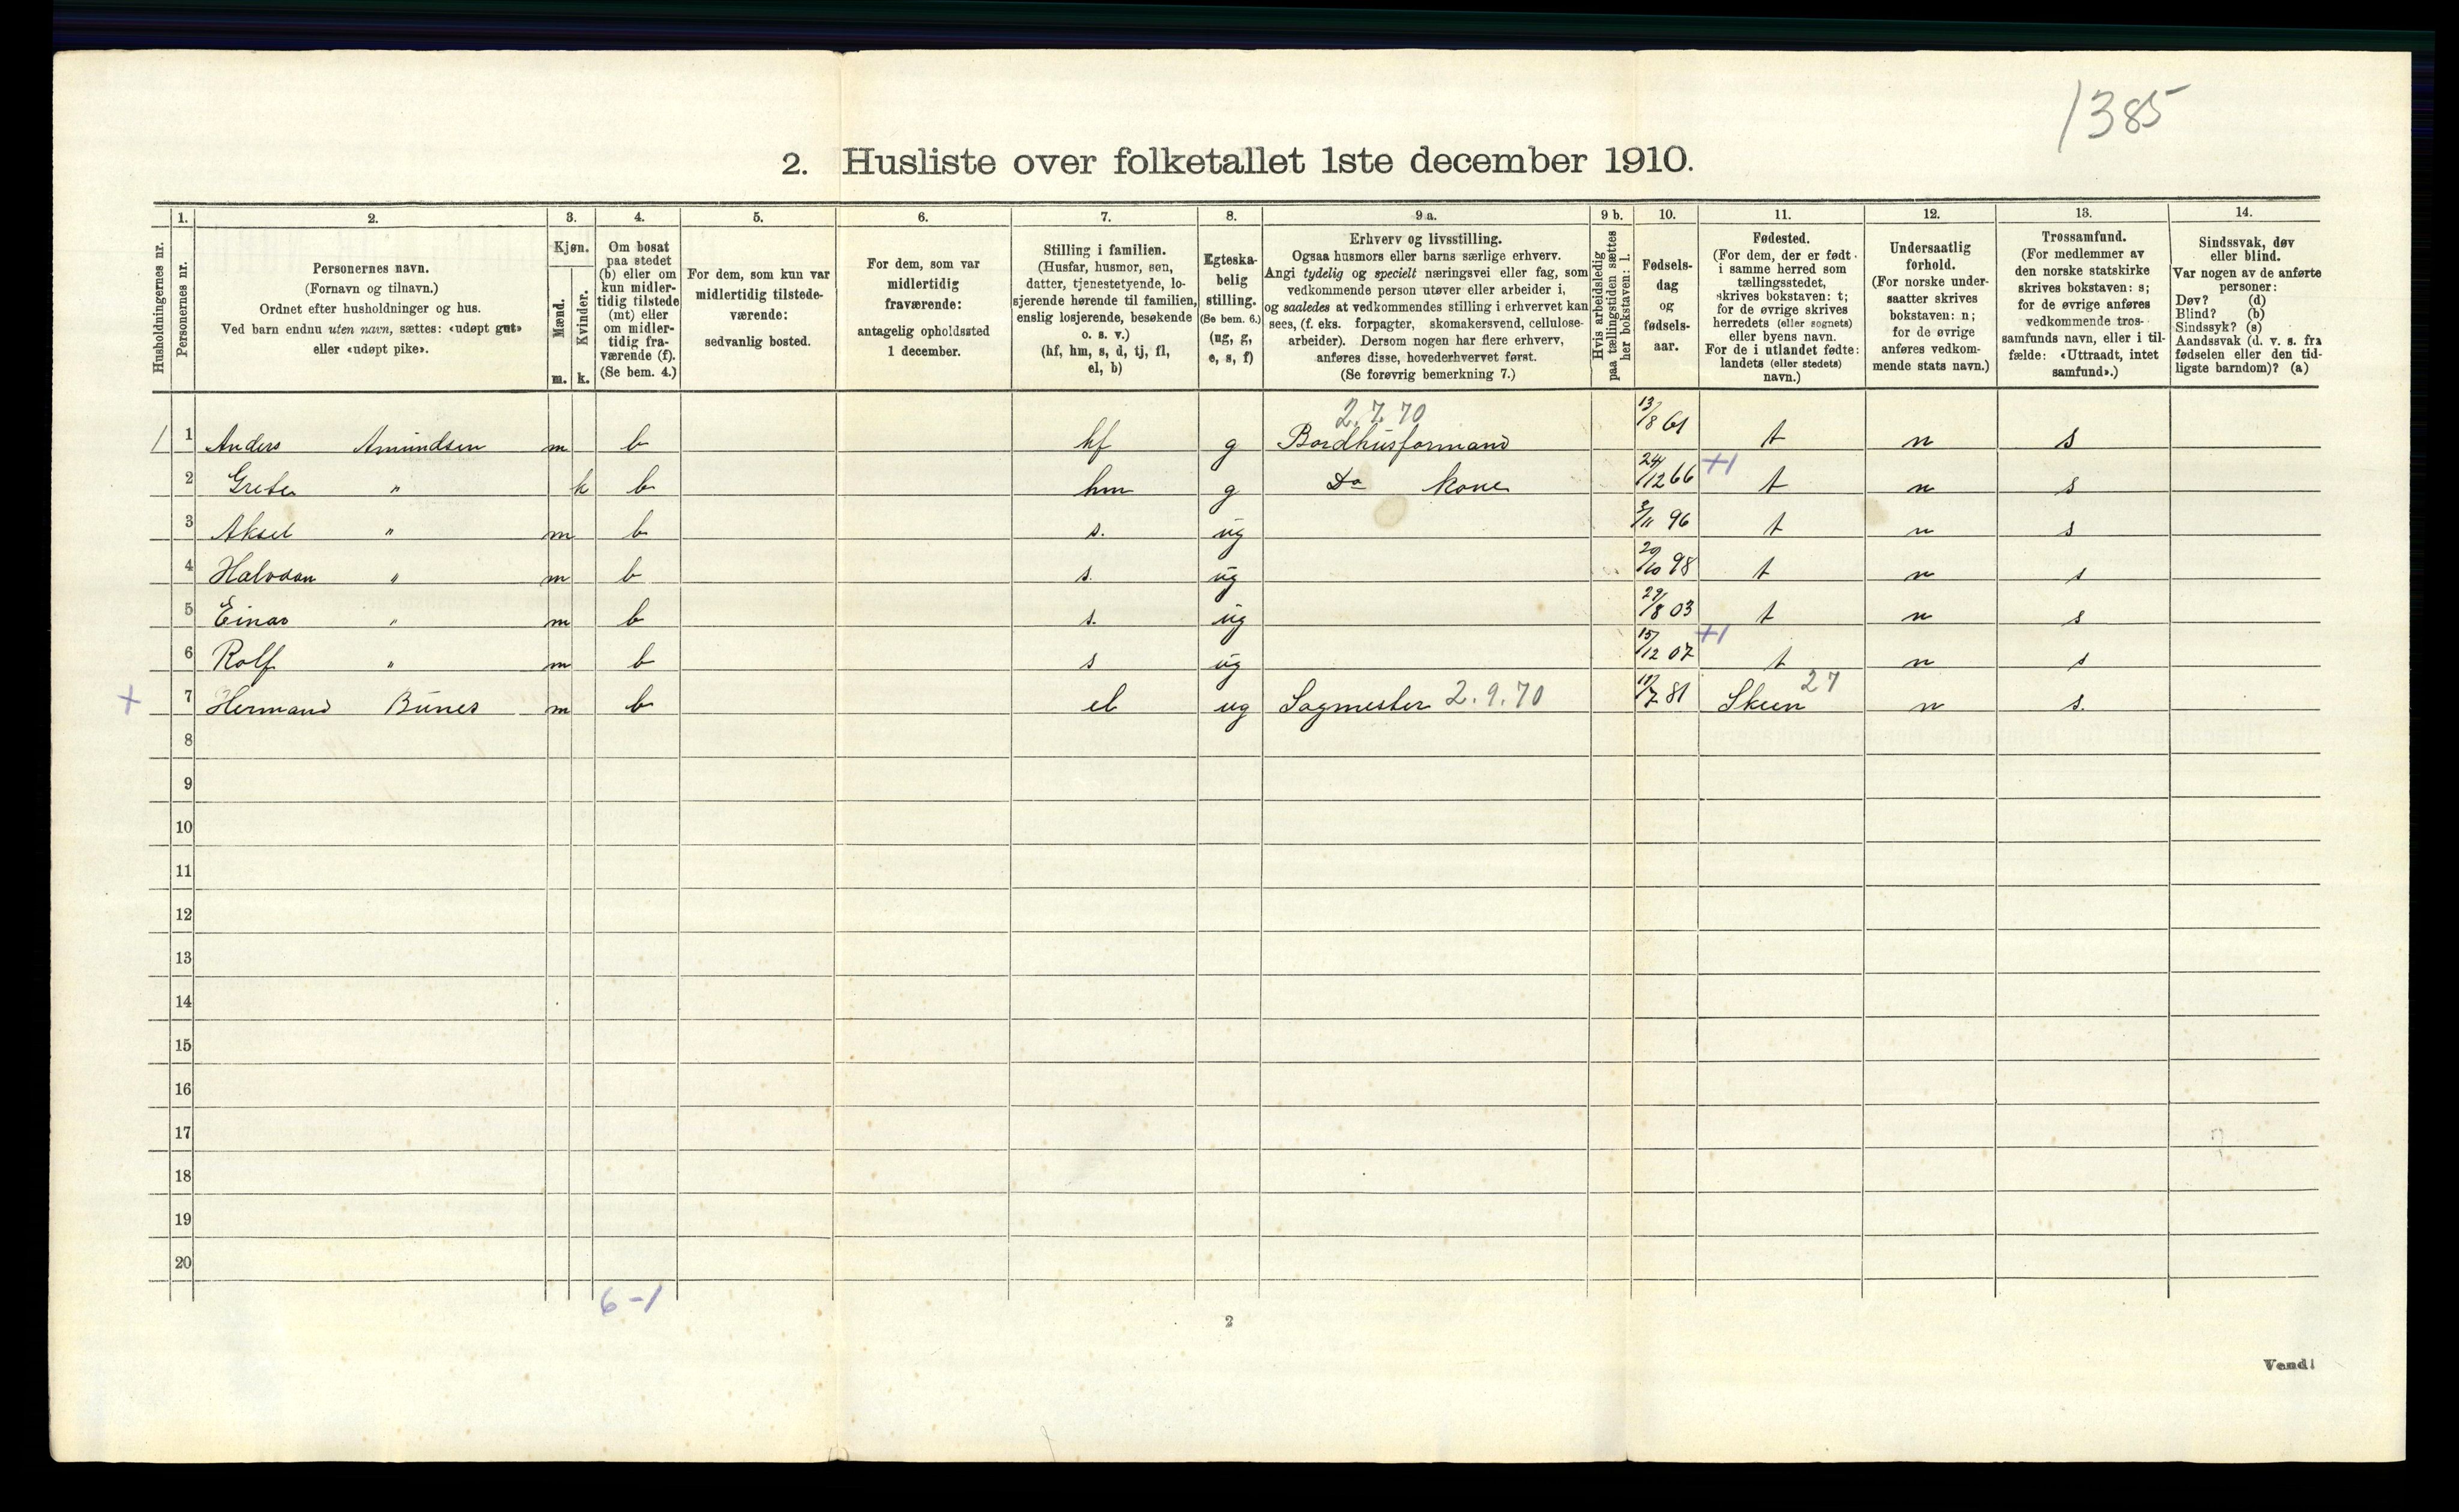 1385
2. Husliste over folketallet 1ste december 1910.
Husholdningernes nr.
1.
Personernes nr.
2.
Personernes navn.
(Fornavn og tilnavn.)
Ordnet efter husholdninger og hus.
Ved barn endnu uten navn, sættes: «udøpt gut»
eller «udøpt pike».
3.
Kjøn.
Mænd.
Kvinder.
m. k.
4.
Om bosat
paa stedet
(b) eller om
kun midler-
tidig tilstede
(mt) eller
om midler-
tidig fra-
værende (f).
(Se bem. 4.)
5.
For dem, som kun var
midlertidig tilstede-
værende:
sedvanlig bosted.
6.
For dem, som var
midlertidig
fraværende:
antagelig opholdssted
1 december.
7.
Stilling i familien.
(Husfar, husmor, søn,
datter, tjenestetyende, lo-
sjerende hørende til familien,
enslig losjerende, besøkende
o. s. v.)
(hf, hm, s, d, tj, fl,
el, b)
8.
Egteska-
belig
stilling.
(Se bem. 6.)
(ug, g,
e, s, f)
9 a.
Erhverv og livsstilling.
Ogsaa husmors eller barns særlige erhverv.
Angi tydelig og specielt næringsvei eller fag, som
vedkommende person utøver eller arbeider i,
og saaledes at vedkommendes stilling i erhvervet kan
sees, (f. eks. forpagter, skomakersvend, cellulose-
arbeider). Dersom nogen har flere erhverv,
anføres disse, hovederhvervet først.
(Se forøvrig bemerkning 7.)
9 b.
Hvis arbeidsledig
paa tællingstiden sættes
her bokstaven: l.
10.
Fødsels-
dag
og
fødsels-
aar.
11.
Fødested.
(For dem, der er født
i samme herred som
tællingsstedet,
skrives bokstaven: t;
for de øvrige skrives
herredets (eller sognets)
eller byens navn.
For de i utlandet fødte:
landets (eller stedets)
navn.)
12.
Undersaatlig
forhold.
(For norske under-
saatter skrives
bokstaven: n;
for de øvrige
anføres vedkom-
mende stats navn.)
13.
Trossamfund.
(For medlemmer av
den norske statskirke
skrives bokstaven: s;
for de øvrige anføres
vedkommende tros-
samfunds navn, eller i til-
fælde: «Uttraadt, intet
samfund».)
14.
Sindssvak, døv
eller blind.
Var nogen av de anførte
personer:
Døv? (d)
Blind? (b)
Sindssyk? (s)
Aandssvak (d. v. s. fra
fødselen eller den tid-
ligste barndom)? (a)
2.7.70
1 1 Anders Amundsen m b hf g Bordhusformand 13/8 61 t n s
2 Grete " k b hm g Do kone 24/12 66 +1 t n s
3 Aksel " m b s. ug /11 96 t n s
4 Halvdan " m b s. ug 20/10 98 t n s
5 Einar " m b s. ug 29/8 03 t n s
6 Rolf " m b s ug 15/12 07 +1 t n s
+ 7 Hermand Bunes m b el ug Sagmester 2.9.70 /7 81 Skeen 27 n s.
8
9
10
11
12
13
14
15
16
17
18
19
20
6-1
2
Vend!